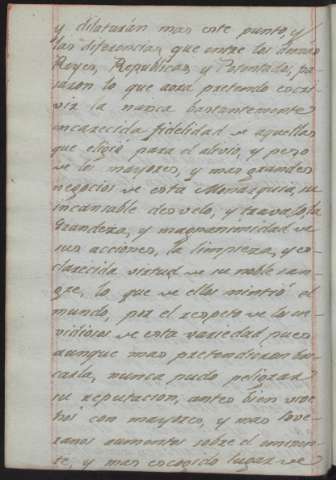 y dilatarán mas este punto, y
las diferencias, que entre los demas
Reyes, Republicas, y Potentados, pa-
saron lo que aora pretendo escri-
vir la nunca bastantemente
encarecida fidelidad de aquellos
que eligió para el alivio, y peso
de los mayores, y mas grandes
negocios de esta Monarquia, su
incansable desvelo, y travalo, la
grandeza, y magnanimidad de
sus acciones, la limpieza, y es-
clarecida virtud de su noble san-
gre, lo que de ellos mintió el
mundo, por el respeto de los in-
vidiosos de esta variedad pues
aunque mas pretendieron
nunca pudo peligrar
su reputacion, antes bien vive
hoi con mayores, y mas
zanos aumentos sobre el eminen-
te, y mas escogido lugar de